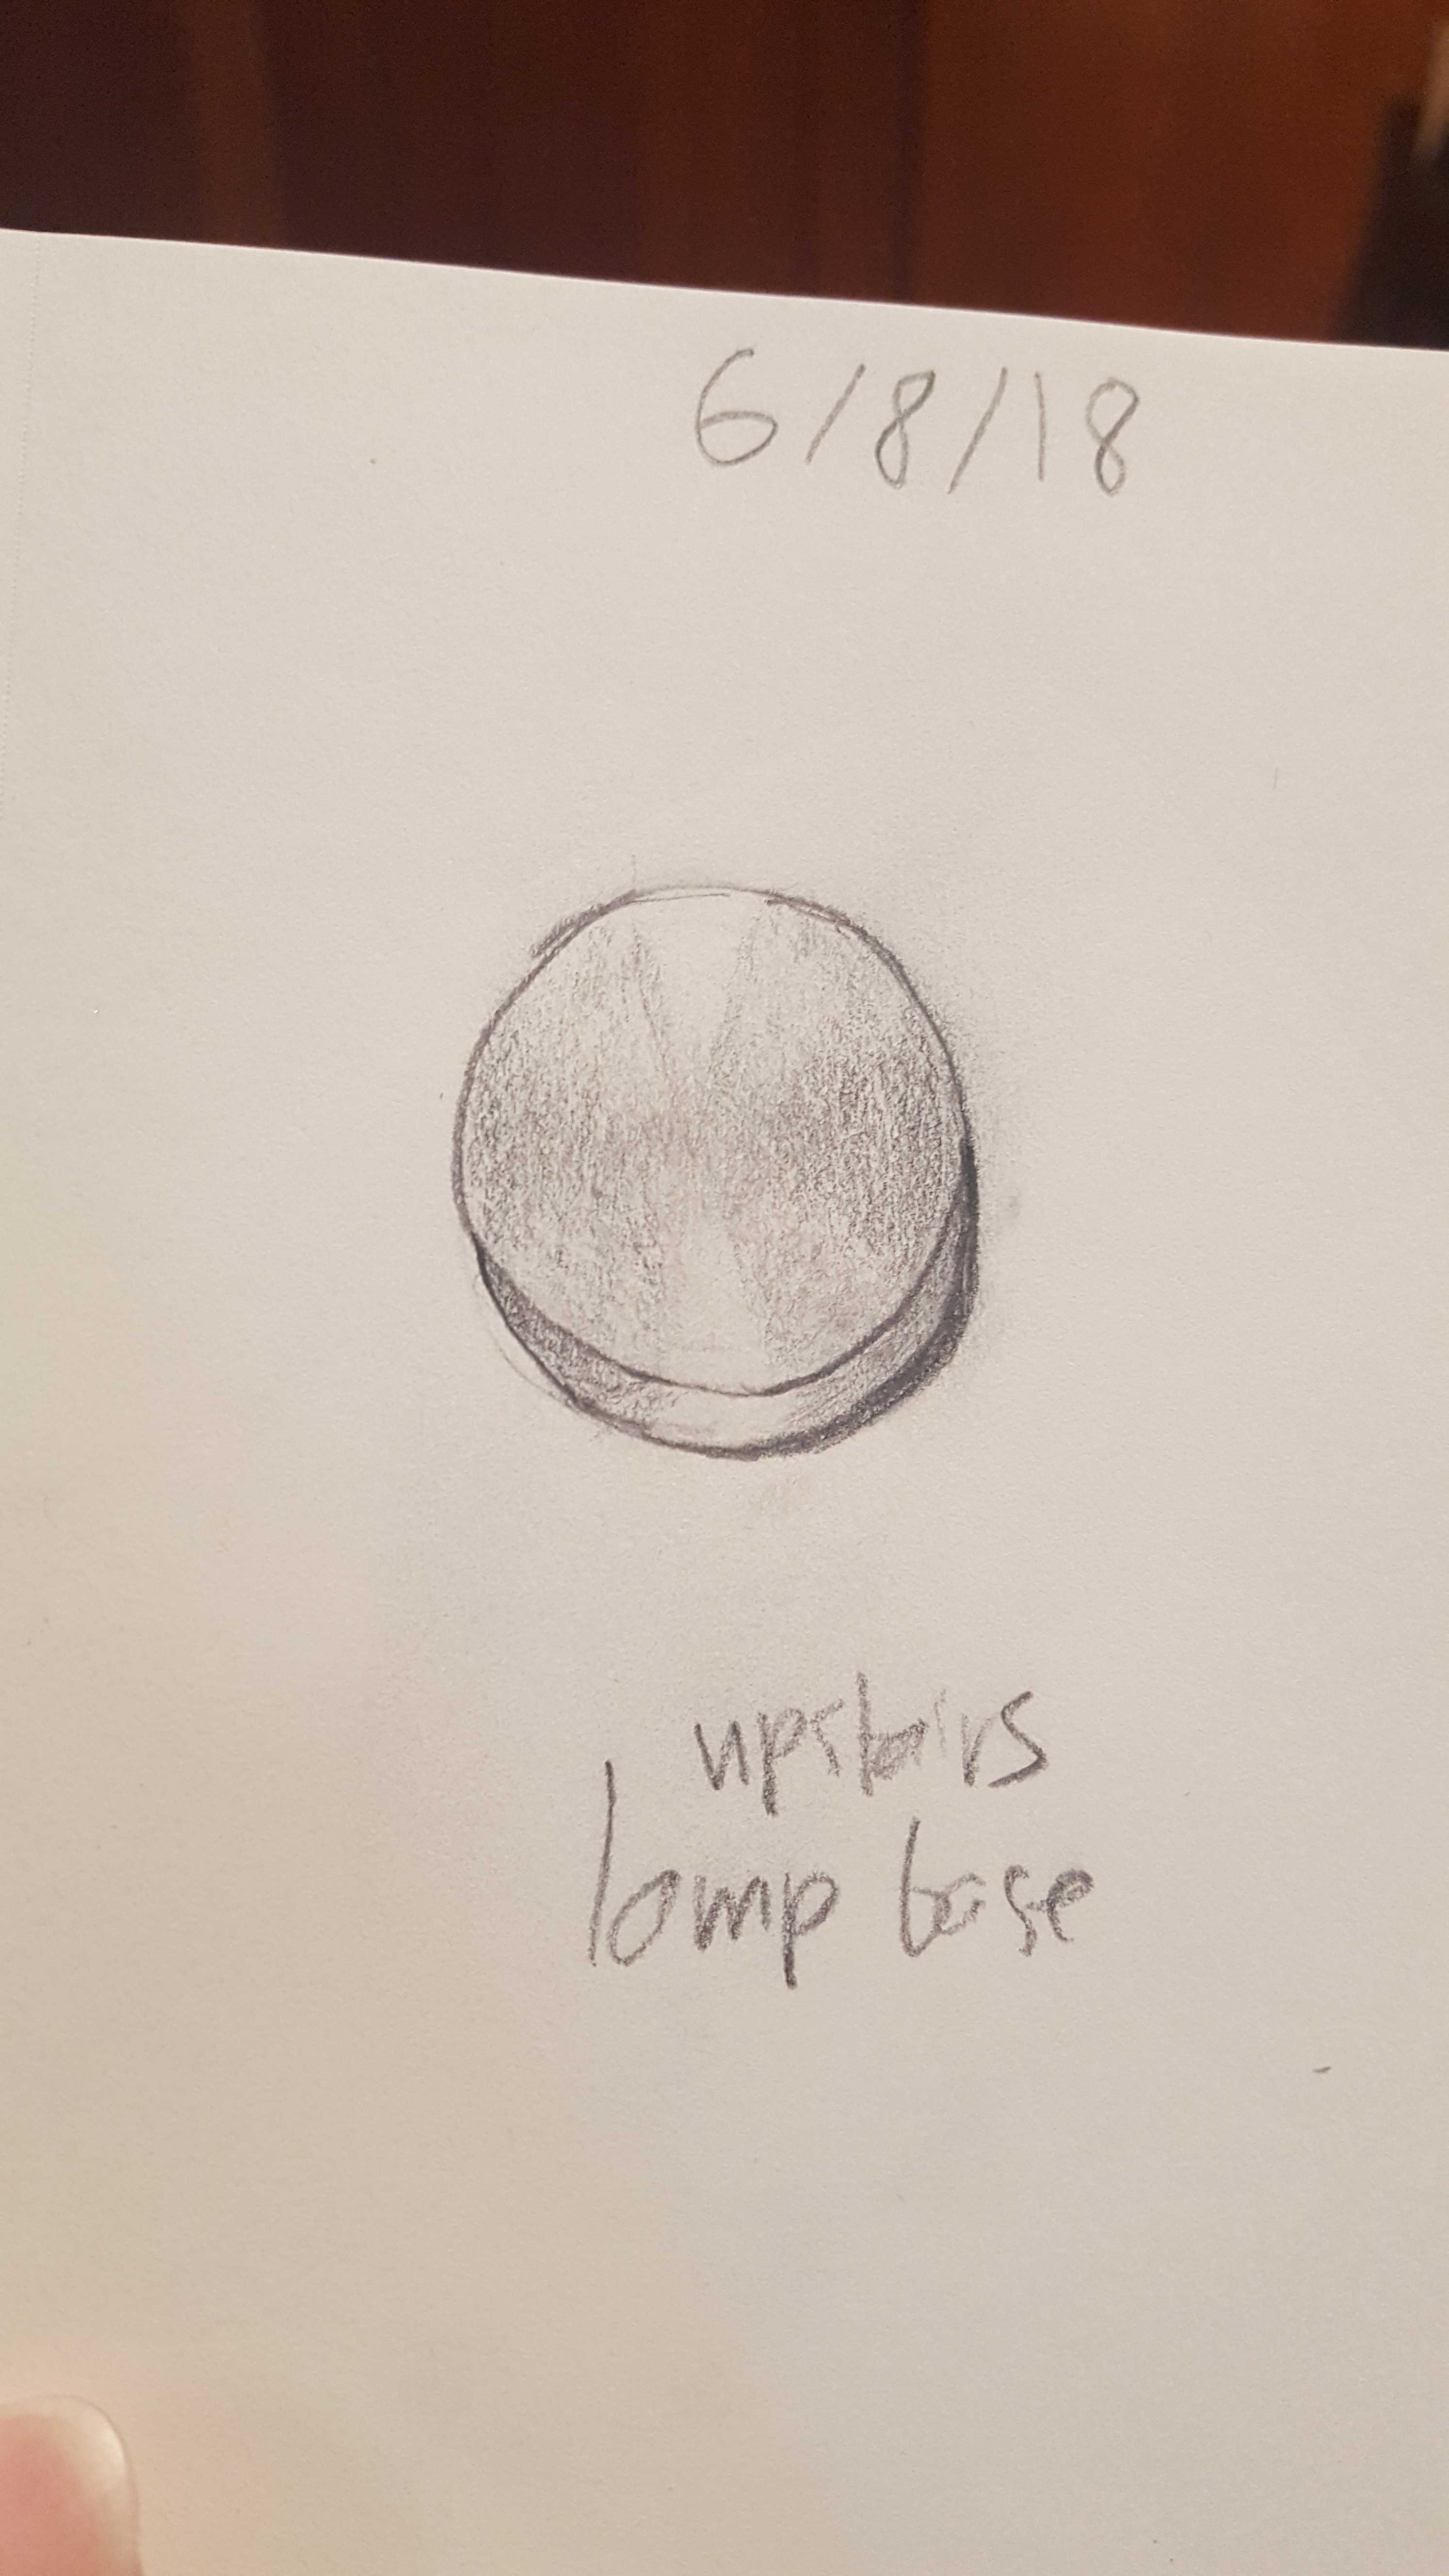 6/8/18
upstairs
lamp base